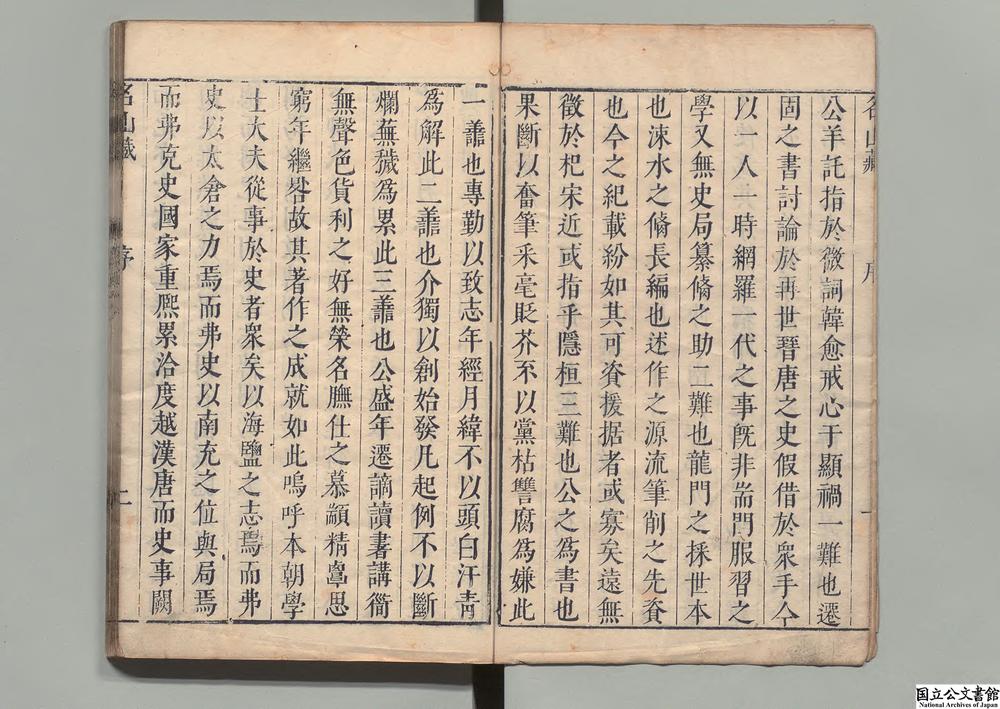 名山藏 序 一
公羊託指於微詞韓愈戒心于顯禍一難也遷
固之書討論於再世晉唐之史假借於衆手今
以一人一時網羅一代之事旣非耑門服習之
學又無史局纂脩之助二難也龍門之採世本
也涑水之脩長編也述作之源流筆削之先資
也今之紀載紛如其可資援据者或寡矣遠無
徵於杞宋近或指乎隱桓三難也公之爲書也
果斷以奮筆采毫貶芥不以黨枯讐腐爲嫌此
一譱也專勤以致志年經月緯不以頭白汗靑
爲解此二譱也介獨以創始發凡起例不以斷
爛蕪穢爲累此三譱也公盛年遷謫讀書講衟
無聲色貨利之好無榮名膴仕之慕顓精覃思
窮年繼晷故其著作之成就如此嗚呼本朝學
士大夫從事於史者衆矣以海鹽之志焉而弗
史以太倉之力焉而弗史以南充之位與局焉
而弗克史國家重熈累洽度越漢唐而史事闕
名山藏 序 二
国立公文書館
National Archives of Japan